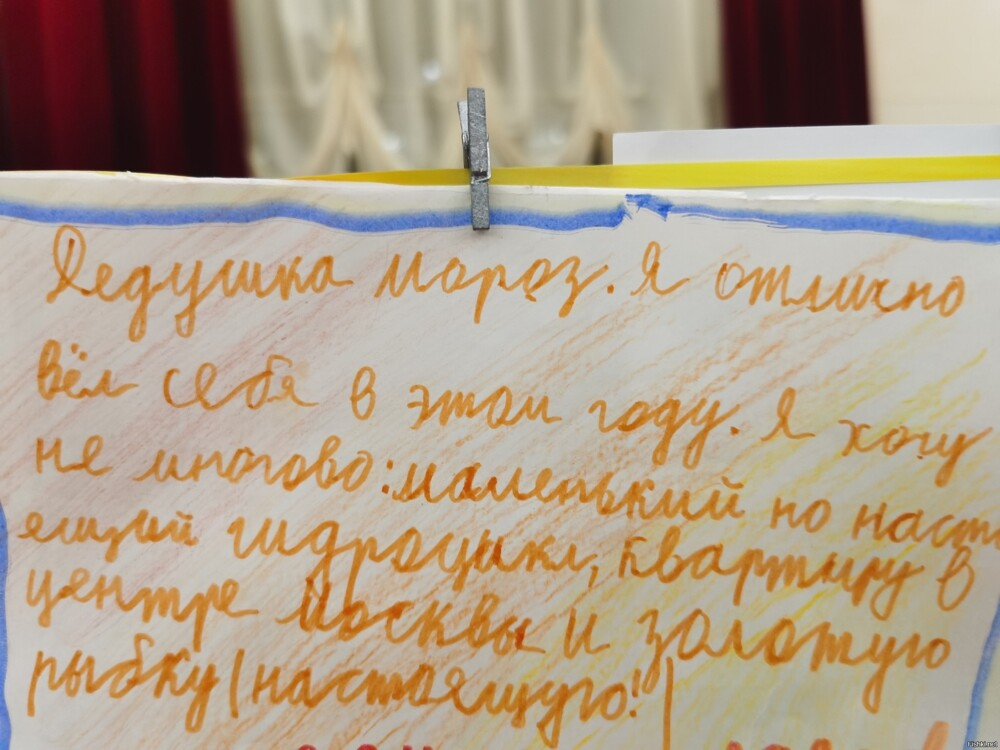 Дедушка Мороз. Я отлично
вёл себя в этом году. Я хочу
не многово: маленький но наст
ящий гидроцикл, квартиру в
центре Москвы и золотую
рыбку (настоящую!)
Fishki.net